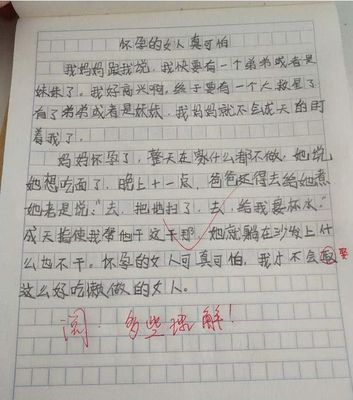 怀孕的女人真可怕
我妈妈跟我说,我快要有一个弟弟或者是
妹妹了。我好高兴啊,终于要有一个人救星了
有了弟弟或者是妹妹,我妈妈就不会成天的盯
着我了。
妈妈怀孕了,整天在家什么都不做,她说
她想吃面了,晚上十一点,爸爸还得去给她煮
她老是说:“去,把地扫了,去,给我要杯水”
成天指使我帮他干这干那,她就躺在沙发上什
么也不干。怀孕的女人可真可怕,我才不会
要
这么好吃懒做的女人。
阅。多些理解!